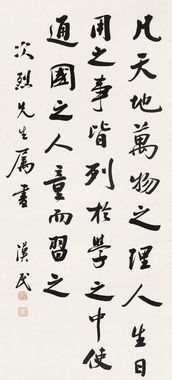 凡天地萬物之理人生日
用之事皆列於學之中使
通國之人童而習之
次烈先生屬書 漢民